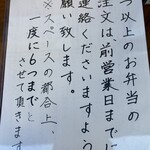 つ以上のお弁当の
注文は前営業日までに
連絡くださいますよう
願い致します。
※スペースの都合上、
一度に6つまでと
させて頂きます